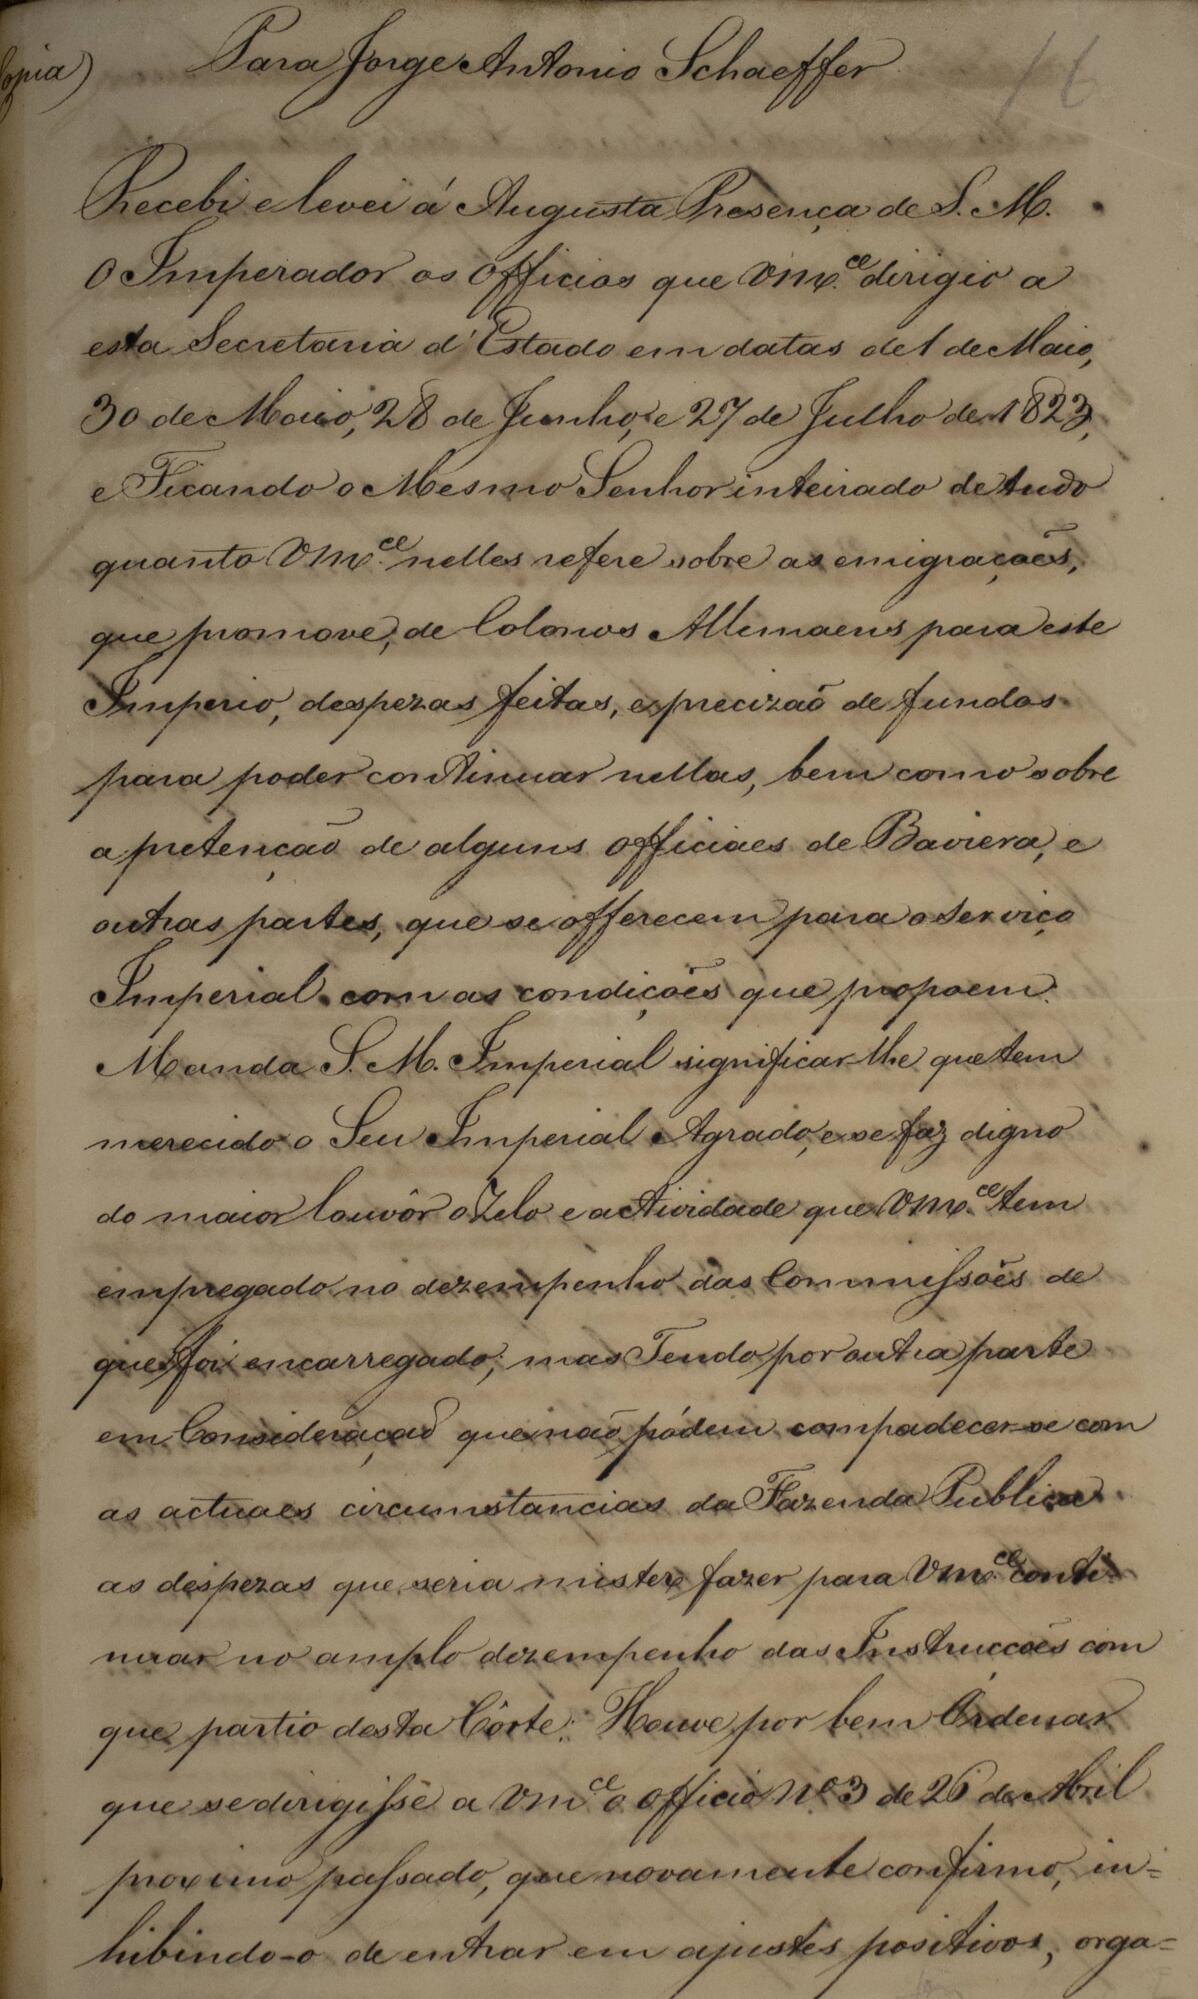 (Copia)
Para Jorge Antonio Schaeffer
16
Recebi e levei á Augusta Presença de S. M.
O Imperador os Officios que Vm.ce dirigio a
esta Secretaria d'Estado em datas de 1 de Maio,
30 de Maio, 28 de Junho, e 27 de Julho de 1823,
e Ficando o Mesmo Senhor inteirado de tudo
quanto Vm.ce nelles refere sobre as emigraçoẽs,
que promove, de Colonos Allemaens para este
Imperio, despezas feitas, e precizaõ de fundos
para poder continuar nellas, bem como sobre
a pretençaõ de alguns Officiaes de Baviera, e
outras partes, que se offerecem para o Serviço
Imperial com as condiçoẽs que propoem.
Manda S. M. Imperial significar-lhe que tem
merecido o Seu Imperial Agrado, e se faz digno
do maior louvôr o Zelo e actividade que Vm.ce tem
empregado no dezempenho das Commissoẽs de
que foi encarregado; mas Tendo por outra parte
em Consideraçaõ que naõ pódem compadecer-se com
as actuaes circumstancias da Fazenda Publica
as despezas que seria mister fazer para Vm.ce conti-
nuar no amplo dezempenho das Instruccoẽs com
que partio desta Côrte: Houve por bem Ordenar
que se dirigisse a Vm.ce o Officio Nº 3 de 26 de Abril
proximo passado, que novamente confirmo, in=
hibindo-o de entrar em ajustes positivos, orga=